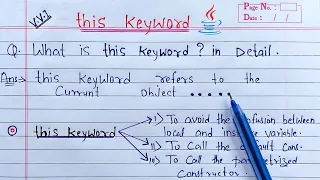 V.V.I
this keyword
Java
Page No.:
Date: / /
Q. What is this keyword? in Detail.
Ans:→ this keyword refers to the
Current object .....
this keyword
i) To avoid the confusion between
local and ins variable.
ii) To Call the default Cons.
iii) To Call the parametrized
Constructor.